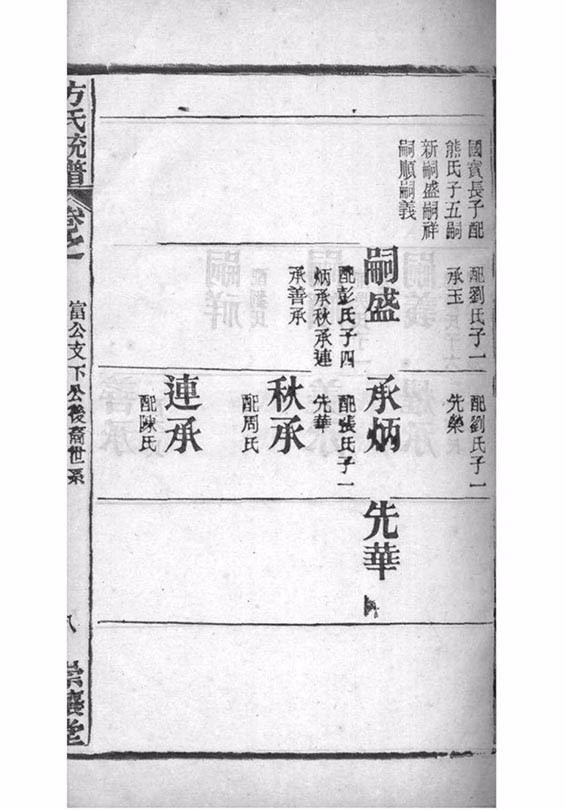 國賓長子配
熊氏子五嗣
新嗣盛嗣祥
嗣順嗣義
配劉氏子一
承玉
嗣盛
配彭氏子四
炳承秋承連
承善承
配劉氏子一
先榮
承炳
配張氏子一
先華
秋承
配周氏
連承
配陳氏
先華
方氏統譜
富公文下公後裔世系
八
崇讓堂